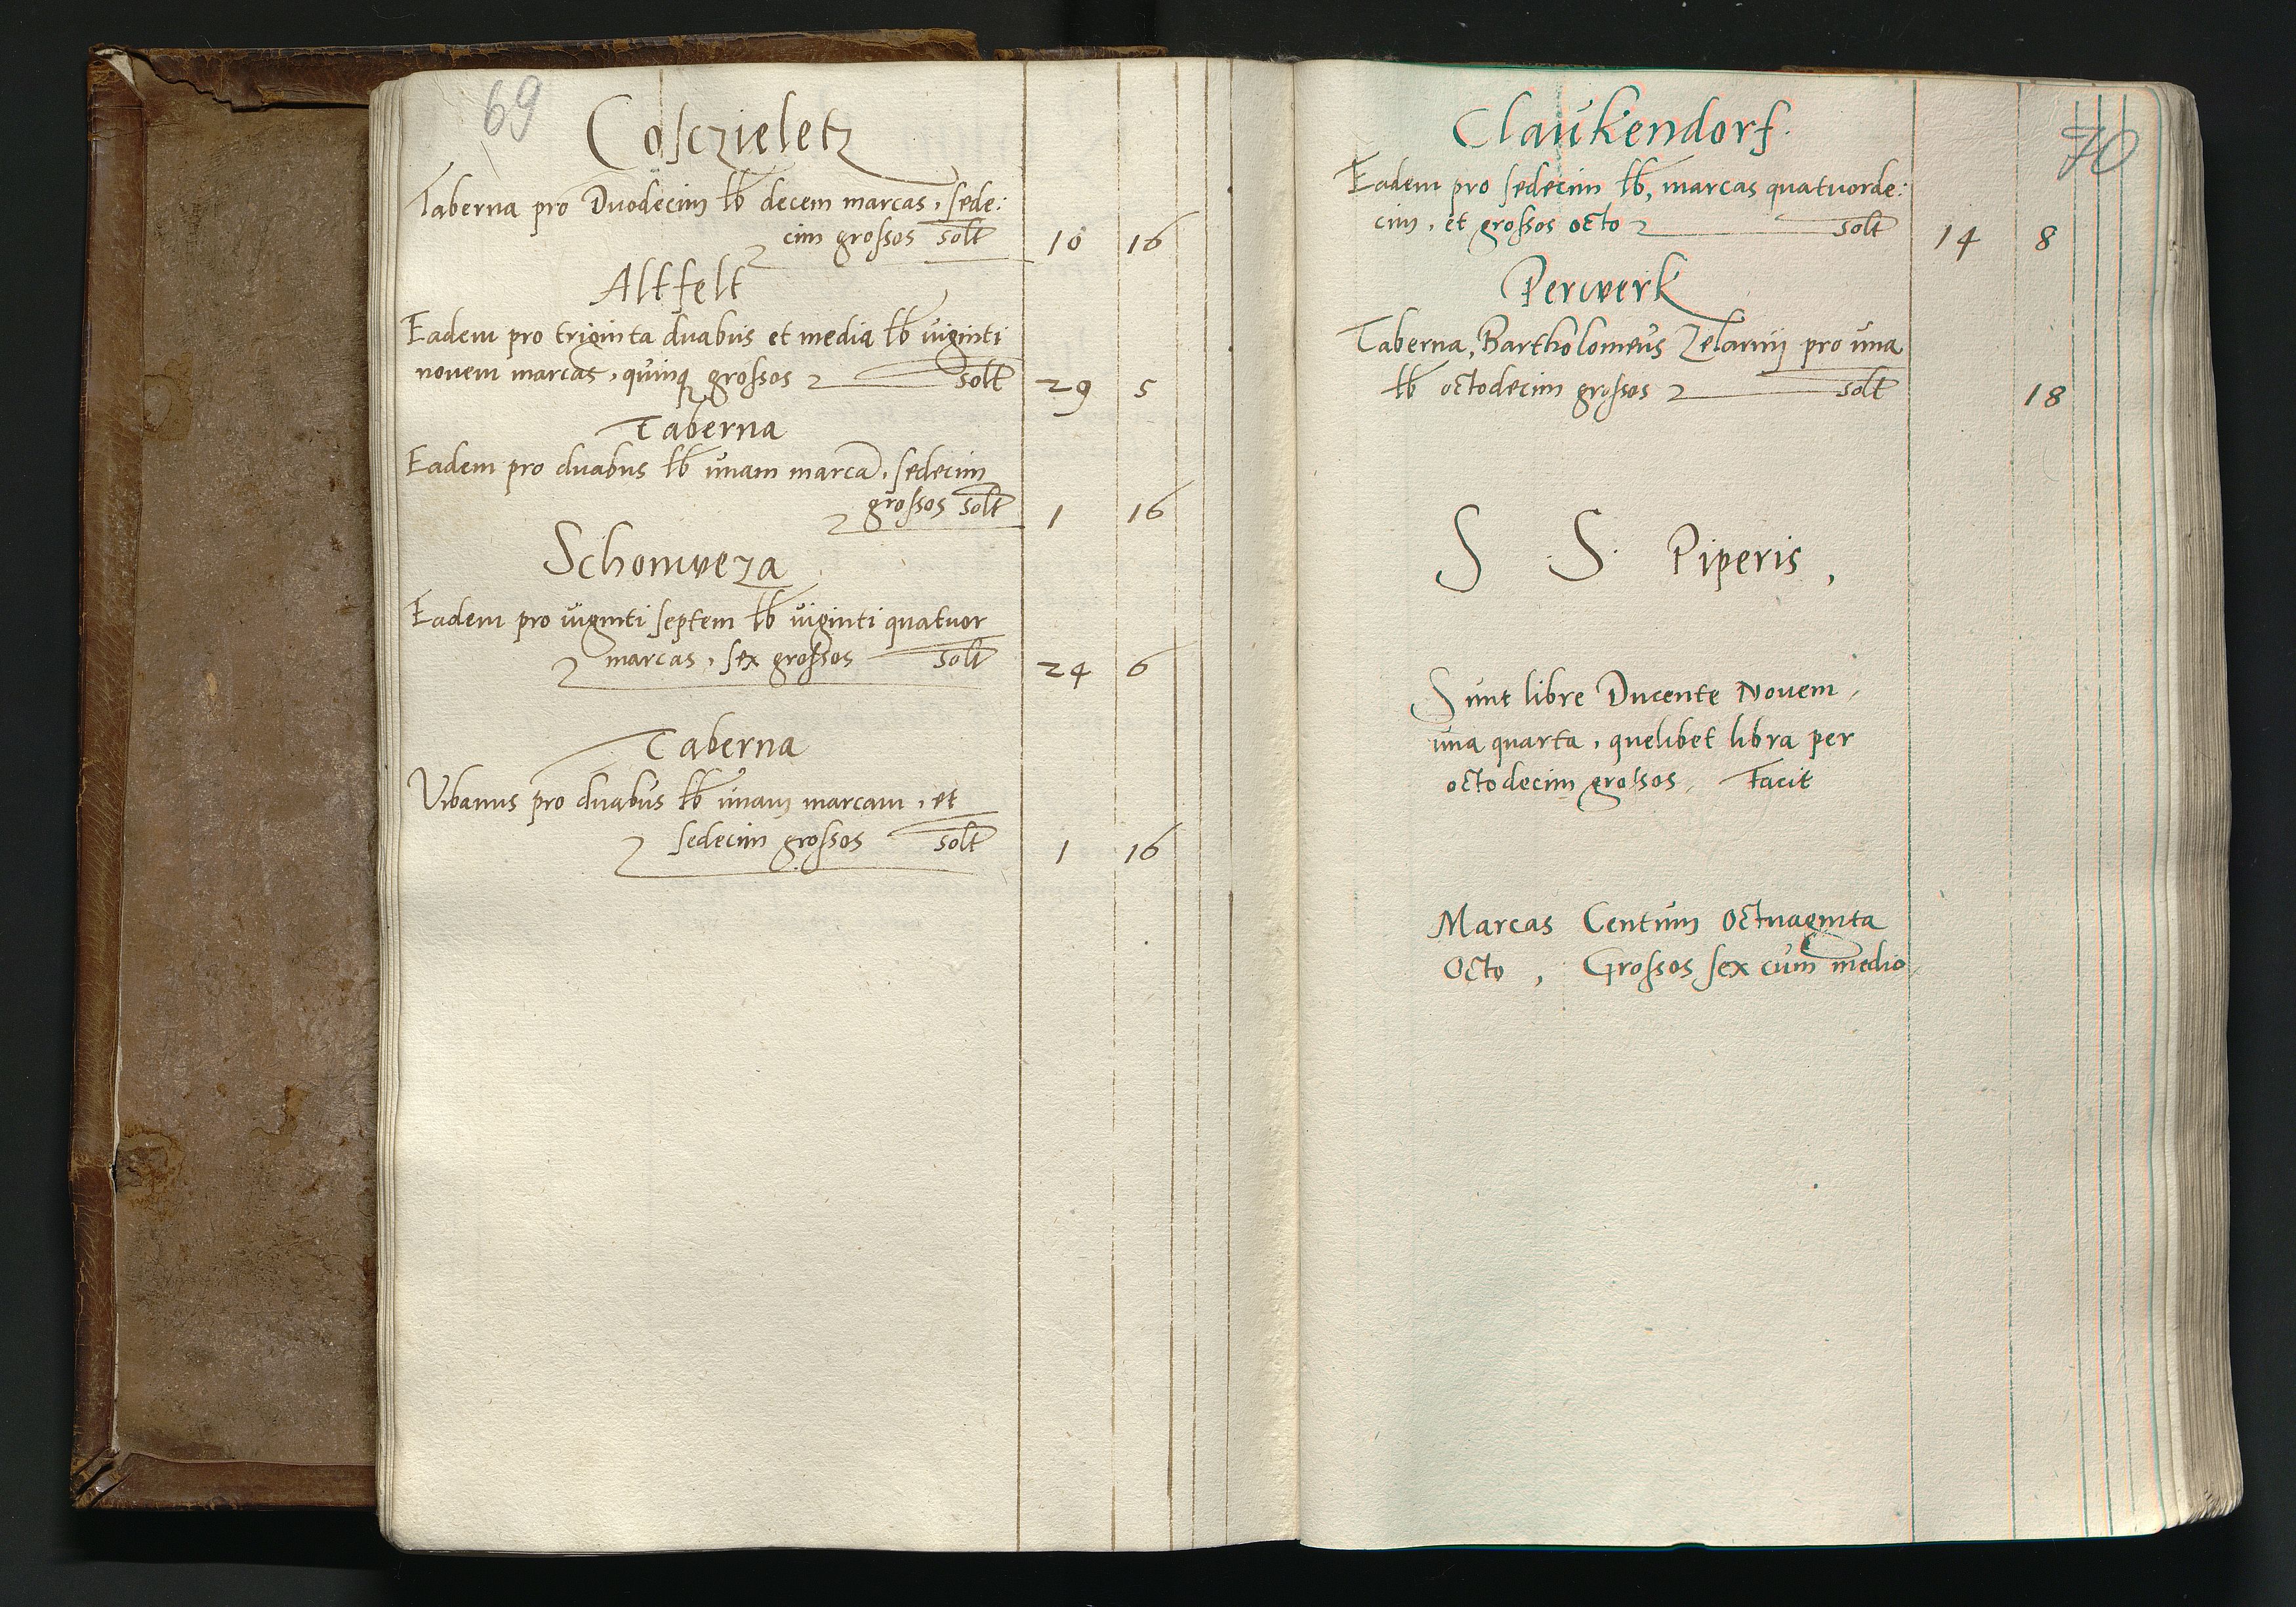 69
Cosczieletz
Taberna pro Duodecim lb decem marcas, sede:
cim grossos solt 10 16
Altfelt
Eadem pro triginta duabus et media lb viginti
novem marcas, quinq grossos solt 29 5
Taberna
Eadem pro duabus lb unam marcā, sedecim
grossos solt 1 16
Schonweza
Eadem pro viginti septem lb viginti quatuor
marcas, sex grossos solt 24 6
Taberna
Urbanus pro duabus lb unam marcam, et
sedecim grossos solt 1 16
70
Claukendorf.
Eadem pro sedecim lb, marcas quatuorde:
cim, et grossos octo solt 14 8
Perwerk
Taberna, Bartholomeus pro una
lb octodecim grossos solt 18
S S. Piperis,
Sunt libre Ducente Novem,
una quarta, quelibet libra per
octodecim grossos, Facit
Marcas Centum Octuaginta
Octo, Grossos sex cum medio